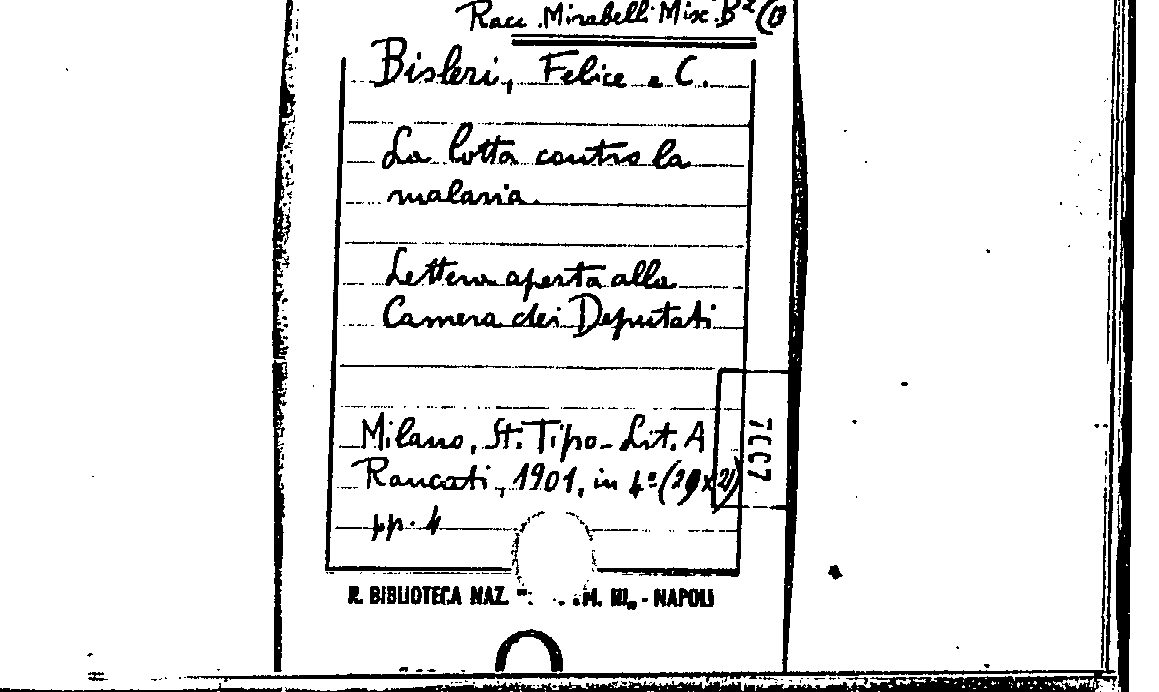 Racc. Mirabelli Misc. B² (
Bisleri, Felice e C.
La lotta contro la
malaria.
Lettera aperta alla
Camera dei Deputati
Milano, St. Tipo-Lit. A
Rancati, 1901, in 4º (29x21)
pp. 4
R. BIBLIOTECA NAZ. - NAPOLI